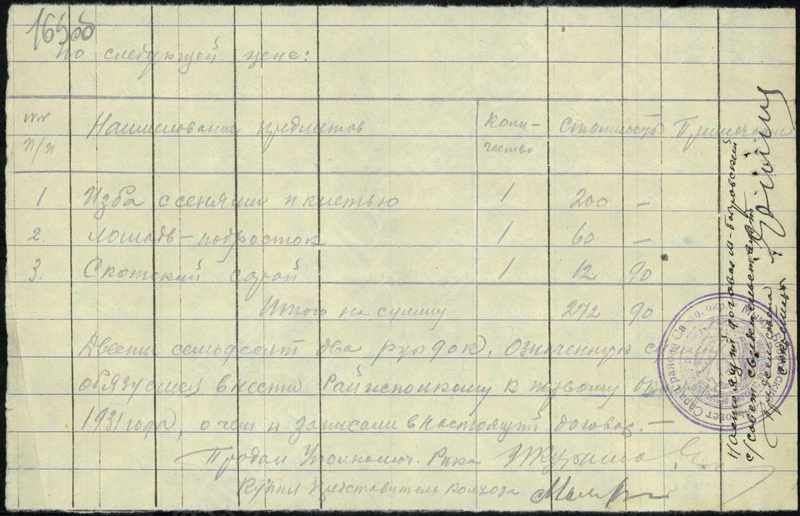 165об
По следующей цене:
№№ п/п | Наименование предметов | Коли-чество | Стоимость | Примечание
1 | Изба с сенями и клетью | 1 | 200 —
2. | Лошадь-подросток | 1 | 60 —
3. | Скотский сарай | 1 | 12 90
Итого на сумму 272 90
Двести семьдесят два руб. 90к. Означенную сумму
обязуемся внести Райисполкому к первому
1931 года, о чем и записали в настоящий договор. —
Продал Уполномоч. Рика
Купил Представитель колхоза
Настоящий договор
с/совет свидетельствует